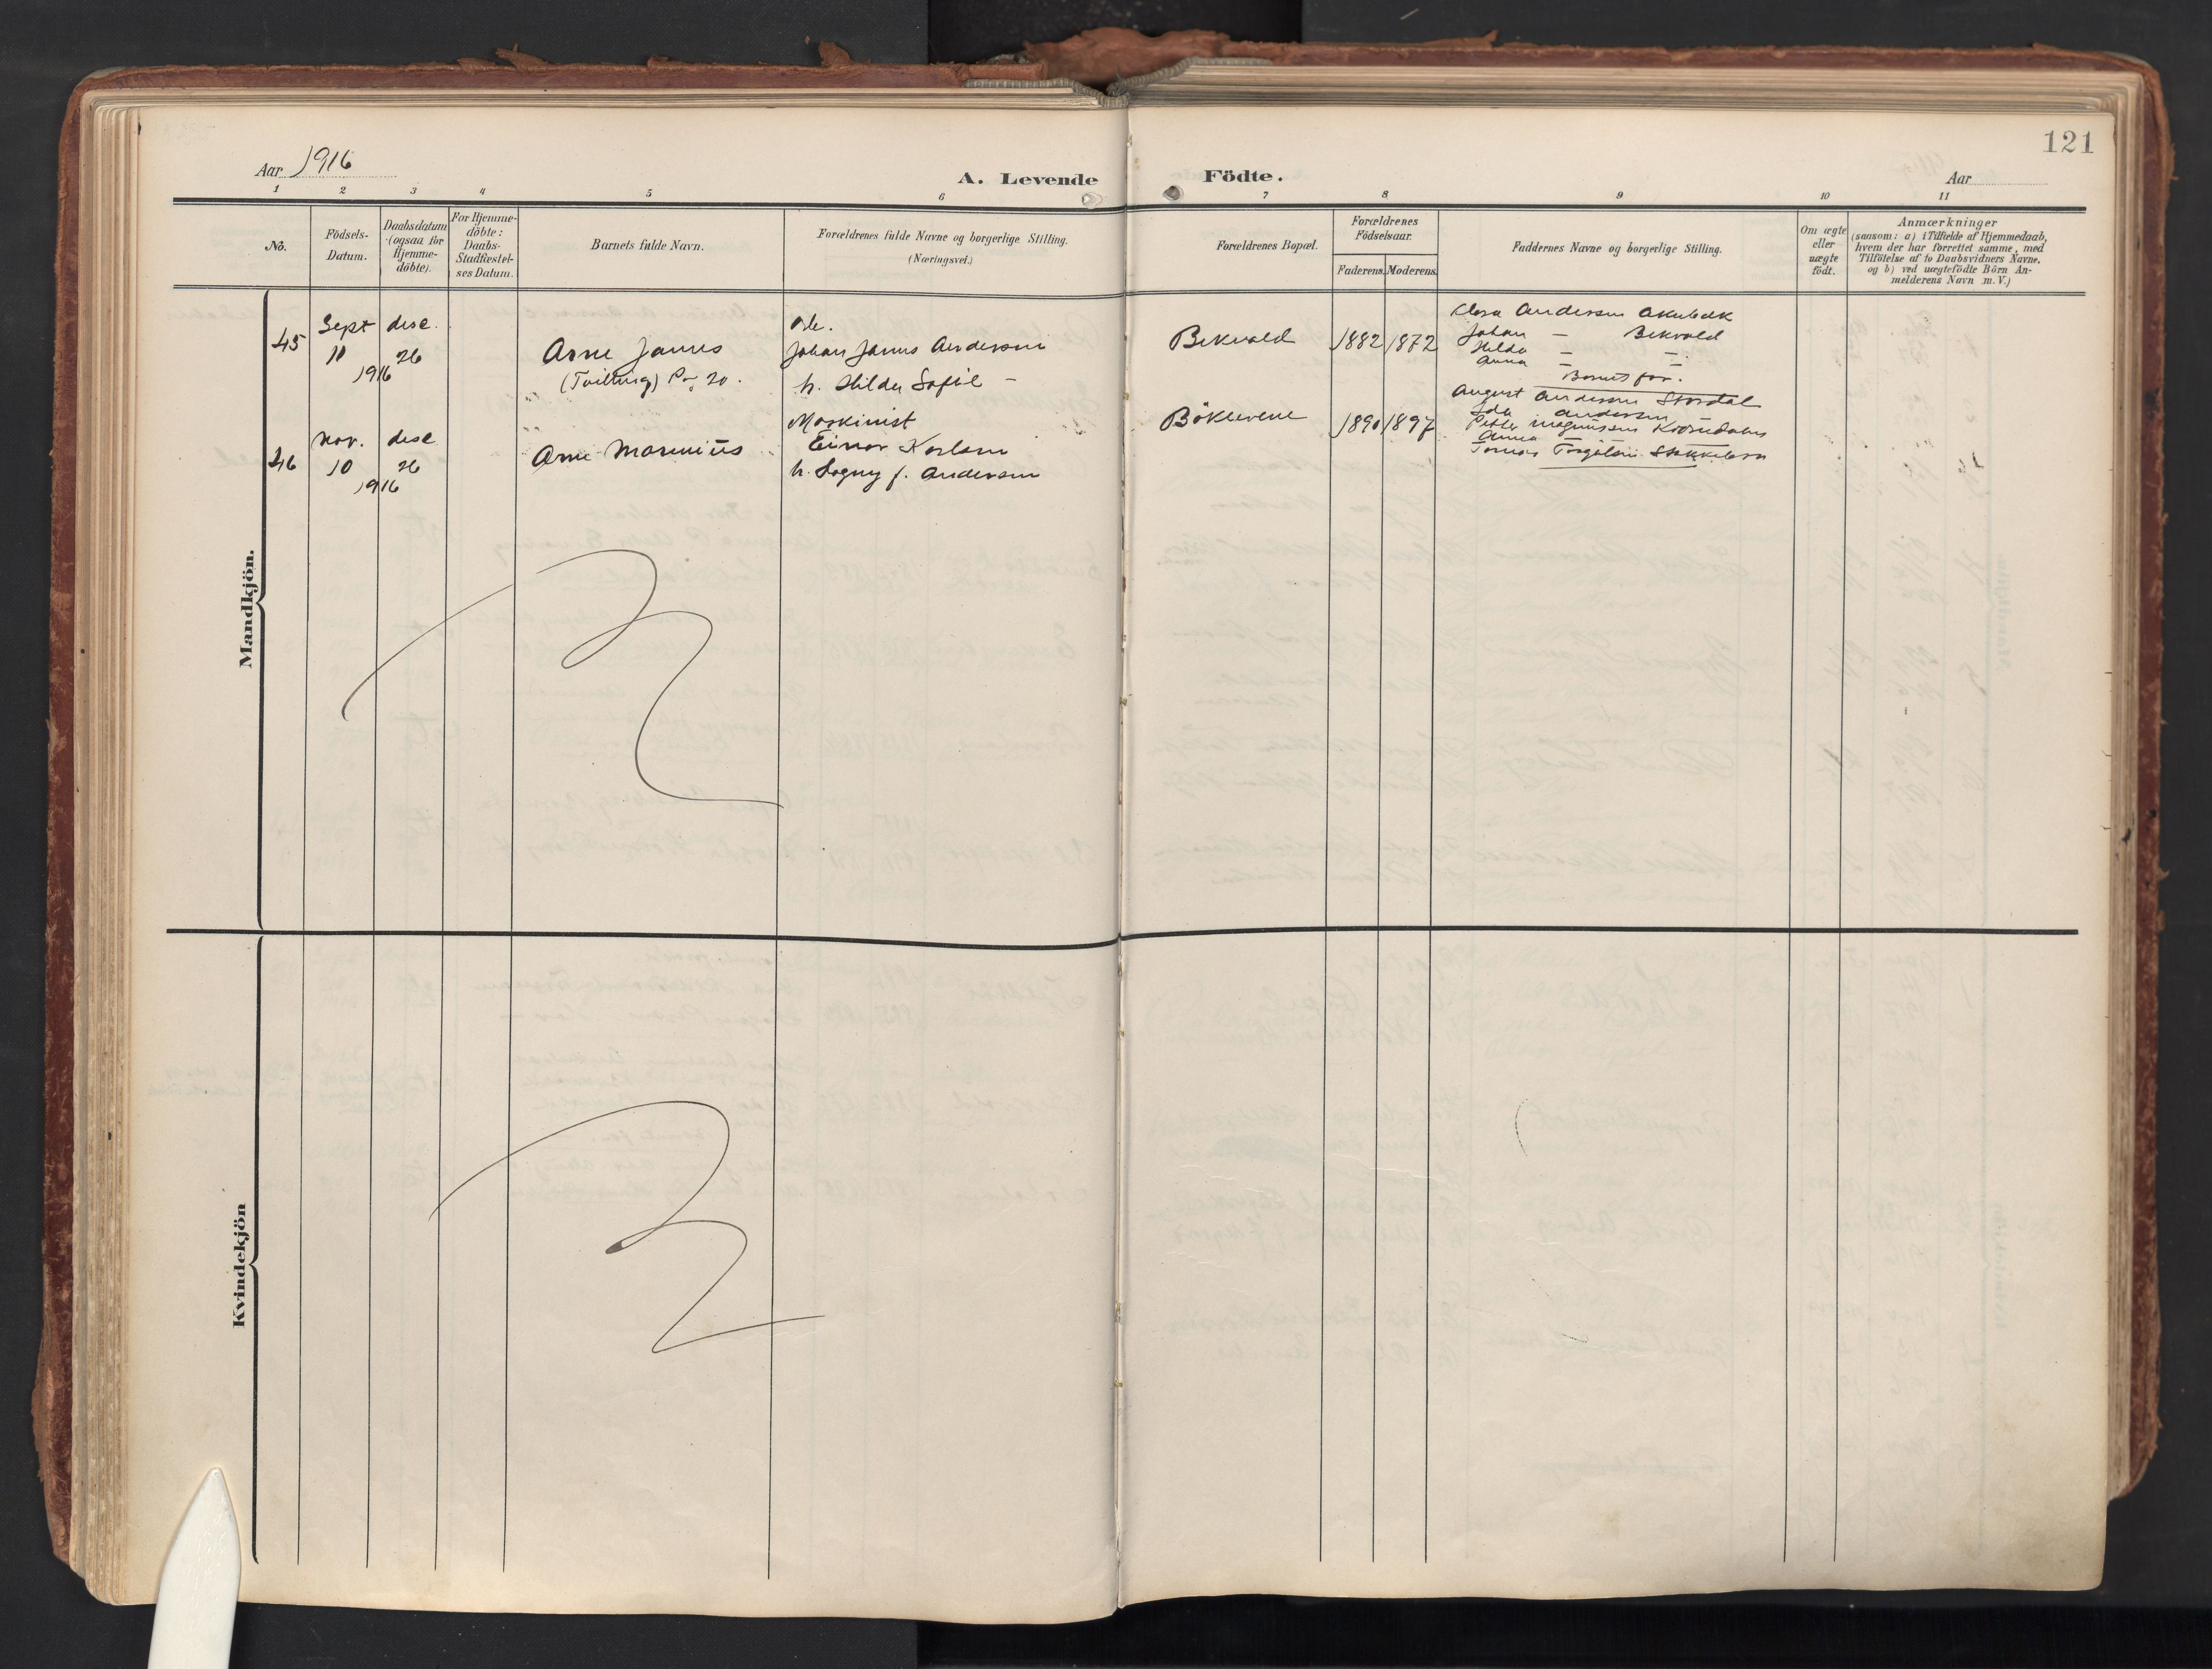 121
Aar 1916
A. Levende Födte.
Aar
1 2 3 4 5 6 7 8 9 10 11
No.
Födsels-
Datum.
Daabsdatum
(ogsaa for
Hjemme-
döbte).
For Hjemme-
döbte:
Daabs-
Stadfæstel-
ses Datum.
Barnets fulde Navn.
Forældrenes fulde Navne og borgerlige Stilling.
(Næringsvei.)
Forældrenes Bopæl.
Forældrenes
Födselsaar.
Faderens. Moderens.
Faddernes Navne og borgerlige Stilling.
Om ægte
eller
uægte
födt.
Anmærkninger
(saasom: a) i Tilfælde af Hjemmedaab,
hvem der har forrettet samme, med
Tilföielse af to Daabsvidners Navne.
og b) ved uægtefödte Börn An-
melderens Navn m. V.)
Mandkjön.
45
Sept
10
1916
dese.
26
Arne James
(Tvilling)
Johan James Andersen
h. Hilda Sofie –
Bekevold
1882 1872
Andersen
Johan – Bekvold
Hilda – –
Anna – –
Barnets for.
46
Nov.
10
1916
dese
26
Arne Marinius
Maskinist
Einar Karlsen
h. Sogny f. Andersen
Böklevene
1890 1897
August Andersen Stordal
Ida Andersen
Petter Magnussen
Anna –
Kvindekjön